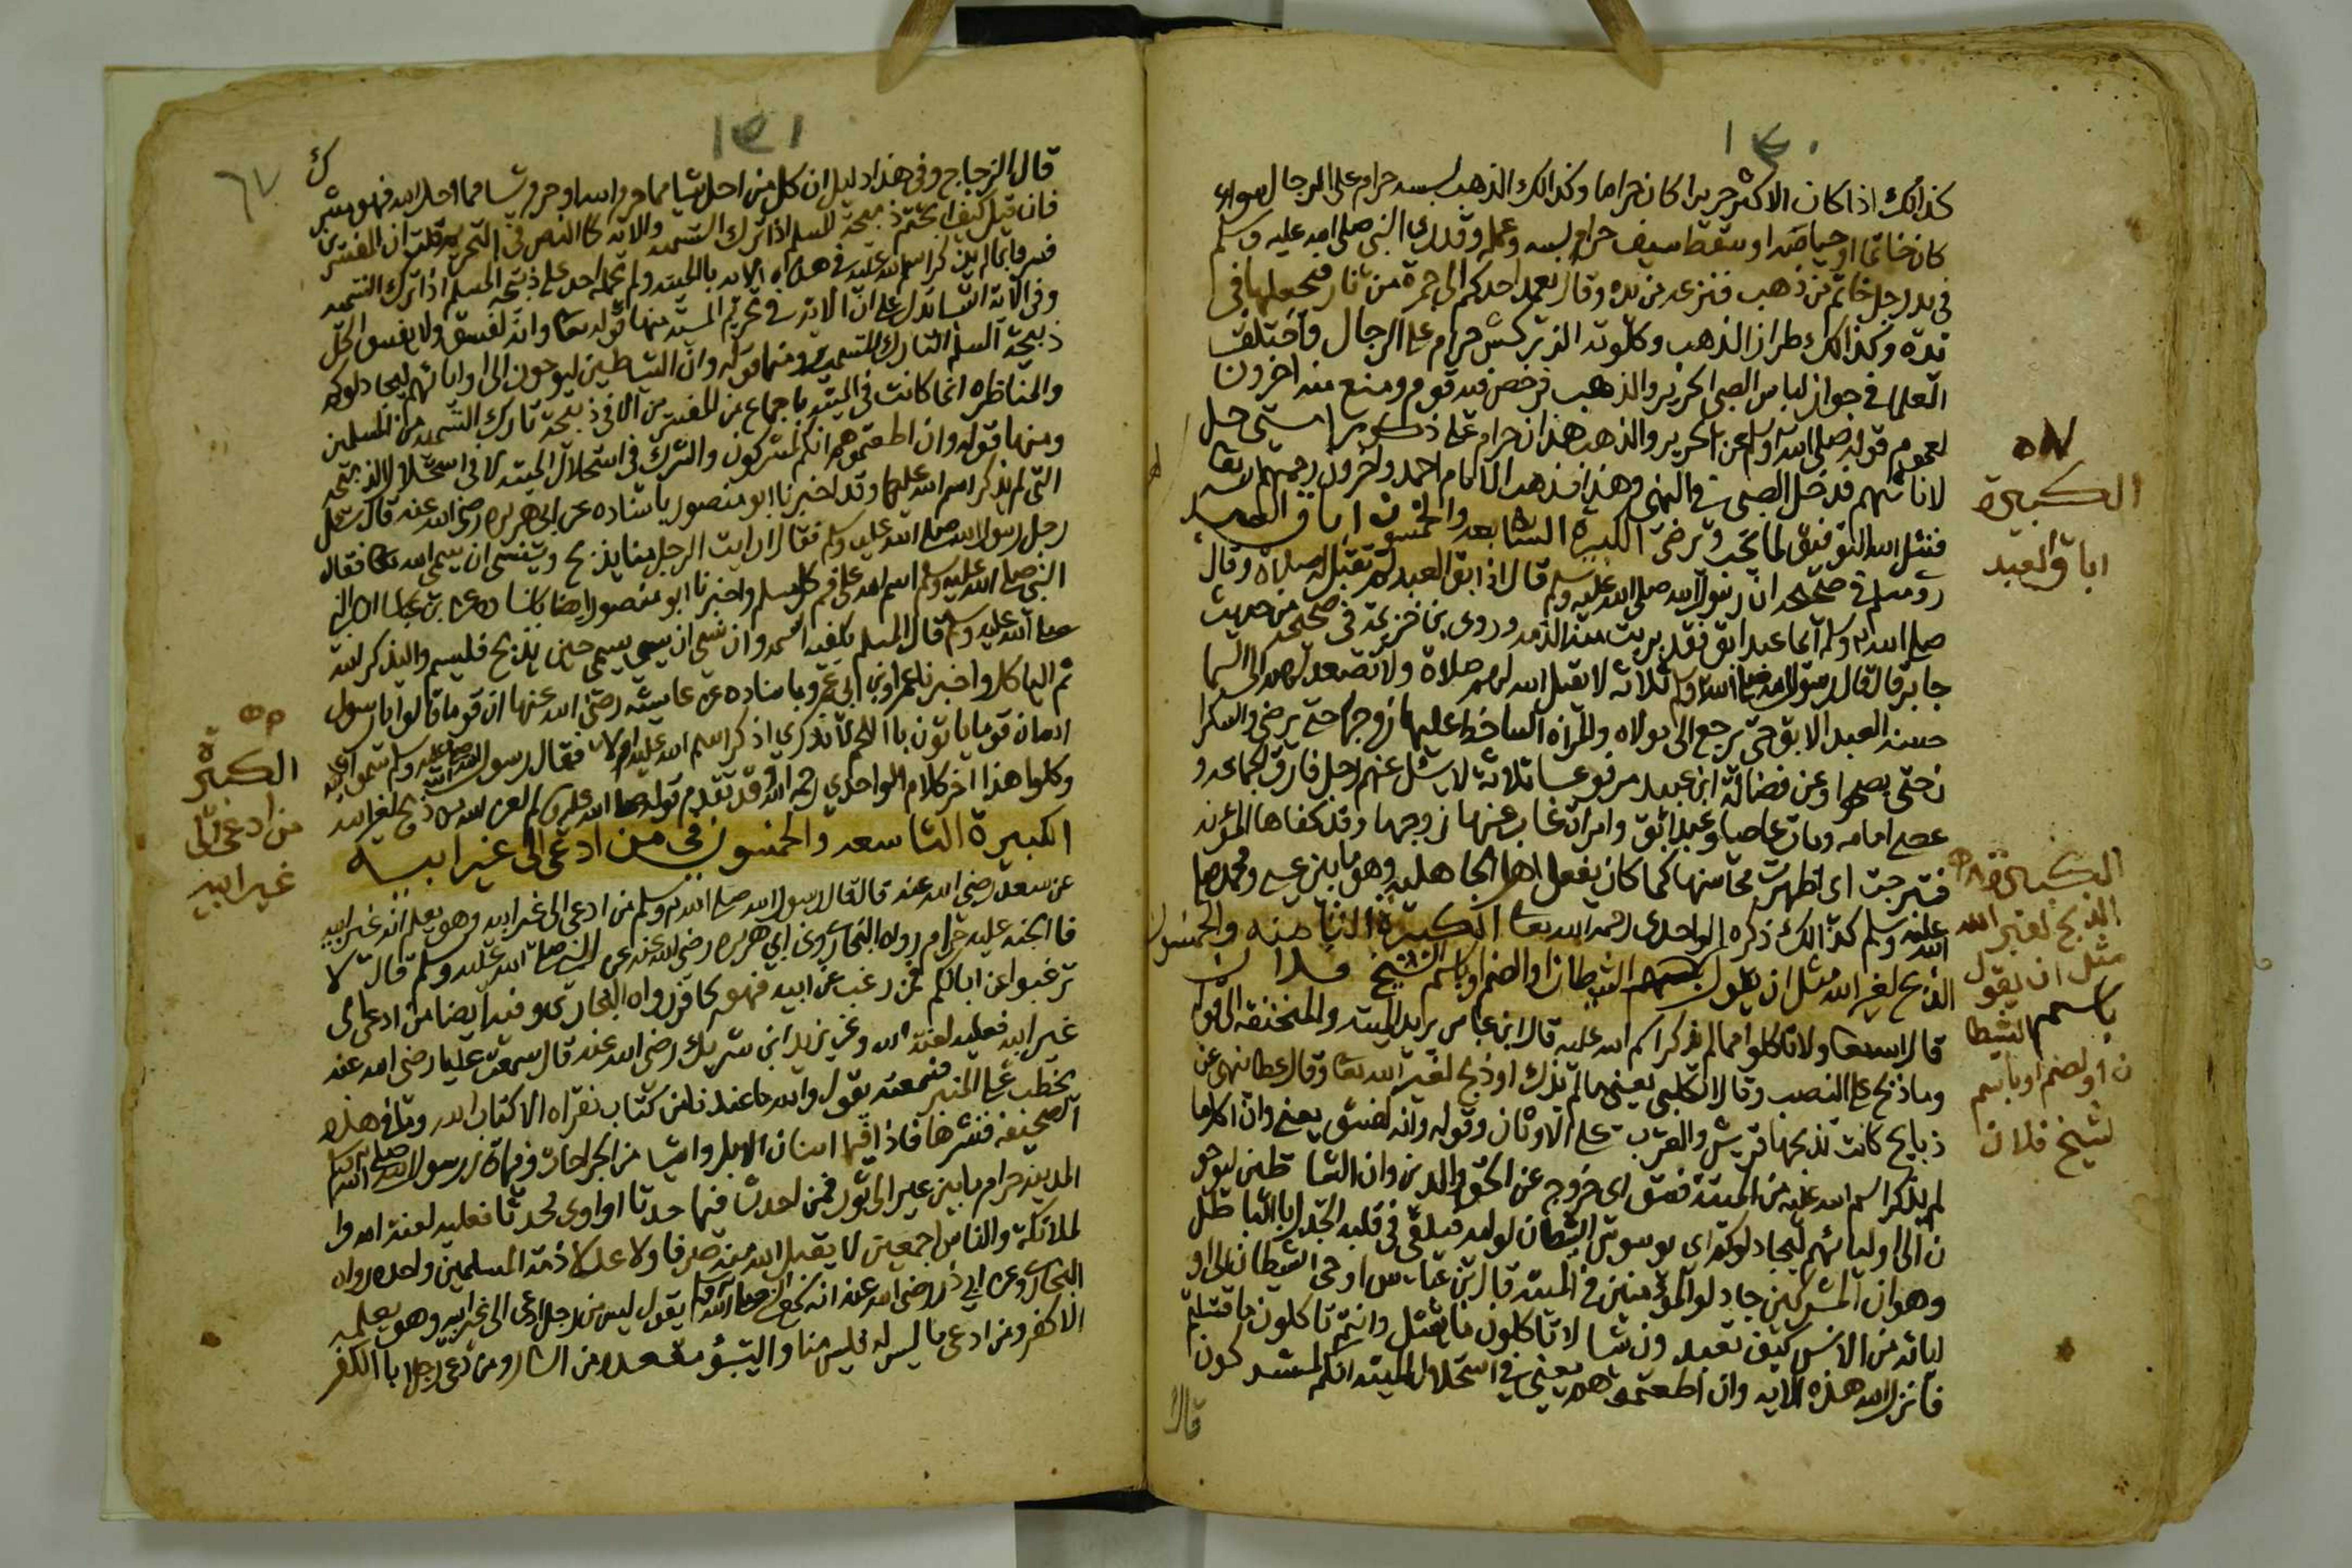 ١٤٠
كذلك اذا كان الاكثر حريرا كان حراما وكذالك الذهب لبسه حرام على الرجال سواء
كان خاتما او حياصه او سقط سيف حرام لبسه وعمله وقد راى النبي صلى الله عليه وسلم
في يد رجل خاتم من ذهب فنزعه من يده وقال يعمد احدكم الى جمرة من نار فيجعلها في
يده وكذالك طراز الذهب وكلوته الزركش حرام على الرجال واختلفت
العلما في جواز لباس الصبي الحرير والذهب فرخص فيه قوم ومنع منه اخرون
لعموم قوله صلى الله وسلم عن الحرير والذهب هذان حرام على ذكور امتي حل
لاناثهم فدخل الصبي في النهي وهذا مذهب الامام احمد واخرون رحمهم الله تعا
فنسئل الله التوفيق لما يحب ويرضى الكبيرة السابعه والخمسون اباق العبد
روى مسلم في صحيحه ان رسول الله صلى الله عليه وسلم قال اذا ابق العبد لم تقبل له صلاة وقال
صلى الله وسلم ايما عبد ابق فقد بريت منه الذمه وروى بن خزيمة في صحيحه من حديث
جابر قال قال رسول الله صلى الله وسلم ثلاثه لا يقبل الله لهم صلاة ولا تصعد لهم الى السما
حسنه العبد الابق حتى يرجع الى مولاه والمرأة الساخط عليها زوجها حتى يرضى والسكرا
ن حتى يصحوا وعن فضالة ابن عبيد مرفوعا ثلاثة لا يسئل عنهم رجل فارق الجماعه و
عصى امامه ومات عاصيا وعبد ابق وامراة غاب عنها زوجها وقد كفاها المؤنه
فتبرجت اي اظهرت محاسنها كما كان يفعل اهل الجاهليه وهو ما بين عيسى ومحمد صلى
الله عليه وسلم كذالك ذكره الواحدي رحمه الله تعا الكبيرة الثامنه والخمسون
الذبح لغير الله مثل ان يقول بسم الشيطان او الصنم او باسم الشيخ فلان
قال الله تعا ولا تاكلوا مما لم يذكر اسم الله عليه قال ابن عباس يريد الميته والمنخنقه الى قوله
وما ذبح على النصب وقال الكلبي يعني ما لم يذك او ذبح لغير الله تعا وقال عطا نهى عن
ذبايح كانت تذبحها قريش والعرب على الاوثان وقوله وانه لفسق يعني وان اكل ما
لم يذكر اسم الله عليه من الميتة فسق اي خروج عن الحق والدين وان الشياطين ليوحو
ن الى اوليائهم ليجادلوكم اي يوسوس الشيطان لوليه فيلقي في قلبه الجدل بالباطل
وهو ان المشركين جادلوا المؤمنين في الميته قال بن عباس اوحى الشيطان الى او
ليائه من الانس كيف تعبدون شيا لا تاكلون ما يقتل وانتم تاكلون ما قتلتم
فانزل الله هذه الايه وان اطعتموهم يعني في استحلال الميته انكم لمشركون
قال
٥٧
الكبيرة
اباق العبد
الكبيرة ٥٨
الذبح لغير الله
مثل ان يقول
باسم الشيطا
ن او لصنم او باسم
لشيخ فلان
١٤١
٦٧
قال الزجاج وفي هذا دليل ان كل من احل شيا مما حرم الله او حرم شيا مما احل الله فهو مشرك
فان قيل كيف ابحتم ذبيحة المسلم اذا ترك التسميه والايه كالنص في التحريم قلت ان المفسرين
فسروا ما لم يذكر اسم الله عليه في هذه الايه بالميته ولم يحمله احد على ذبيحة المسلم اذا ترك التسميه
وفي الآية اشيا تدل على ان الآية في تحريم الميته منها قوله تعا وانه لفسق ولا يفسق اكل
ذبيحة المسلم التارك للتسميه ومنها قوله وان الشياطين ليوحون الى اوليائهم ليجادلوكم
والمناظره انما كانت في الميته باجماع من المفسرين الا في ذبيحة تارك التسميه من المسلمين
ومنها قوله وان اطعتموهم انكم لمشركون والشرك في استحلال الميته لا في استحلال الذبيحة
التي لم يذكر اسم الله عليها وقد اخبرنا ابو منصور باسناده عن ابي هريره رضي الله عنه قال سئل
رجل رسول الله صلى الله عليه وسلم فقال ارايت الرجل منا يذبح وينسى ان يسمي الله تعا فقال
النبي صلى الله عليه وسلم اسم الله على فم كل مسلم واخبرنا ابو منصور ايضا باسناده عن بن عباس ان النبي
صلى الله عليه وسلم قال المسلم يكفيه اسمه وان نسي ان يسمي حين يذبح فليسم وليذكر الله
ثم لياكل واخبرنا عمرو بن ابي عمرو باسناده عن عايشه رضي الله عنها ان قوما قالوا يا رسول
الله ان قوما ياتون بااللحم لا ندري اذكر اسم الله عليه ام لا فقال رسول الله صلى الله عليه وسلم سموا الله
وكلوا هذا اخر كلام الواحدي رحمه الله وقد تقدم قوله صلى الله عليه وسلم لعن الله من ذبح لغير الله
الكبيرة التاسعه والخمسون في من ادعى الى غير ابيه
عن سعد رضي الله عنه قال قال رسول الله صلى الله وسلم من ادعى الى غير ابيه وهو يعلم انه غير ابيه
فا الجنه عليه حرام رواه البخاري وعن ابي هريره رضي الله عنه عن النبي صلى الله عليه وسلم قال لا
ترغبوا عن ابائكم فمن رغب عن ابيه فهو كافر رواه البخاري وفيه ايضا من ادعى الى
غير ابيه فعليه لعنة الله وعن يزيد ابن شريك رضي الله عنه قال سمعت عليا رضي الله عنه
يخطب على المنبر فسمعته يقول والله ما عندنا من كتاب نقراه الا كتاب الله وما في هذه
الصحيفه فنشرها فاذا فيها اسنان الابل واشيا من الجراحات وفيها قال رسول الله صلى الله وسلم
المدينه حرام ما بين عير الى ثور فمن احدث فيها حدثا او اوى محدثا فعليه لعنة الله وا
لملائكة والناس اجمعين لا يقبل الله منه صرفا ولا عدلا ذمة المسلمين واحده رواه
البخاري وعن ابي ذر رضي الله عنه انه سمع النبي صلى الله وسلم يقول ليس من رجل ادعى الى غير ابيه وهو يعلمه
الا كفر ومن ادعى ما ليس له فليس منا واليتبؤ مقعده من النار ومن دعى رجلا باالكفر
٥٩
الكبيرة
من ادعى الى
غير ابيه